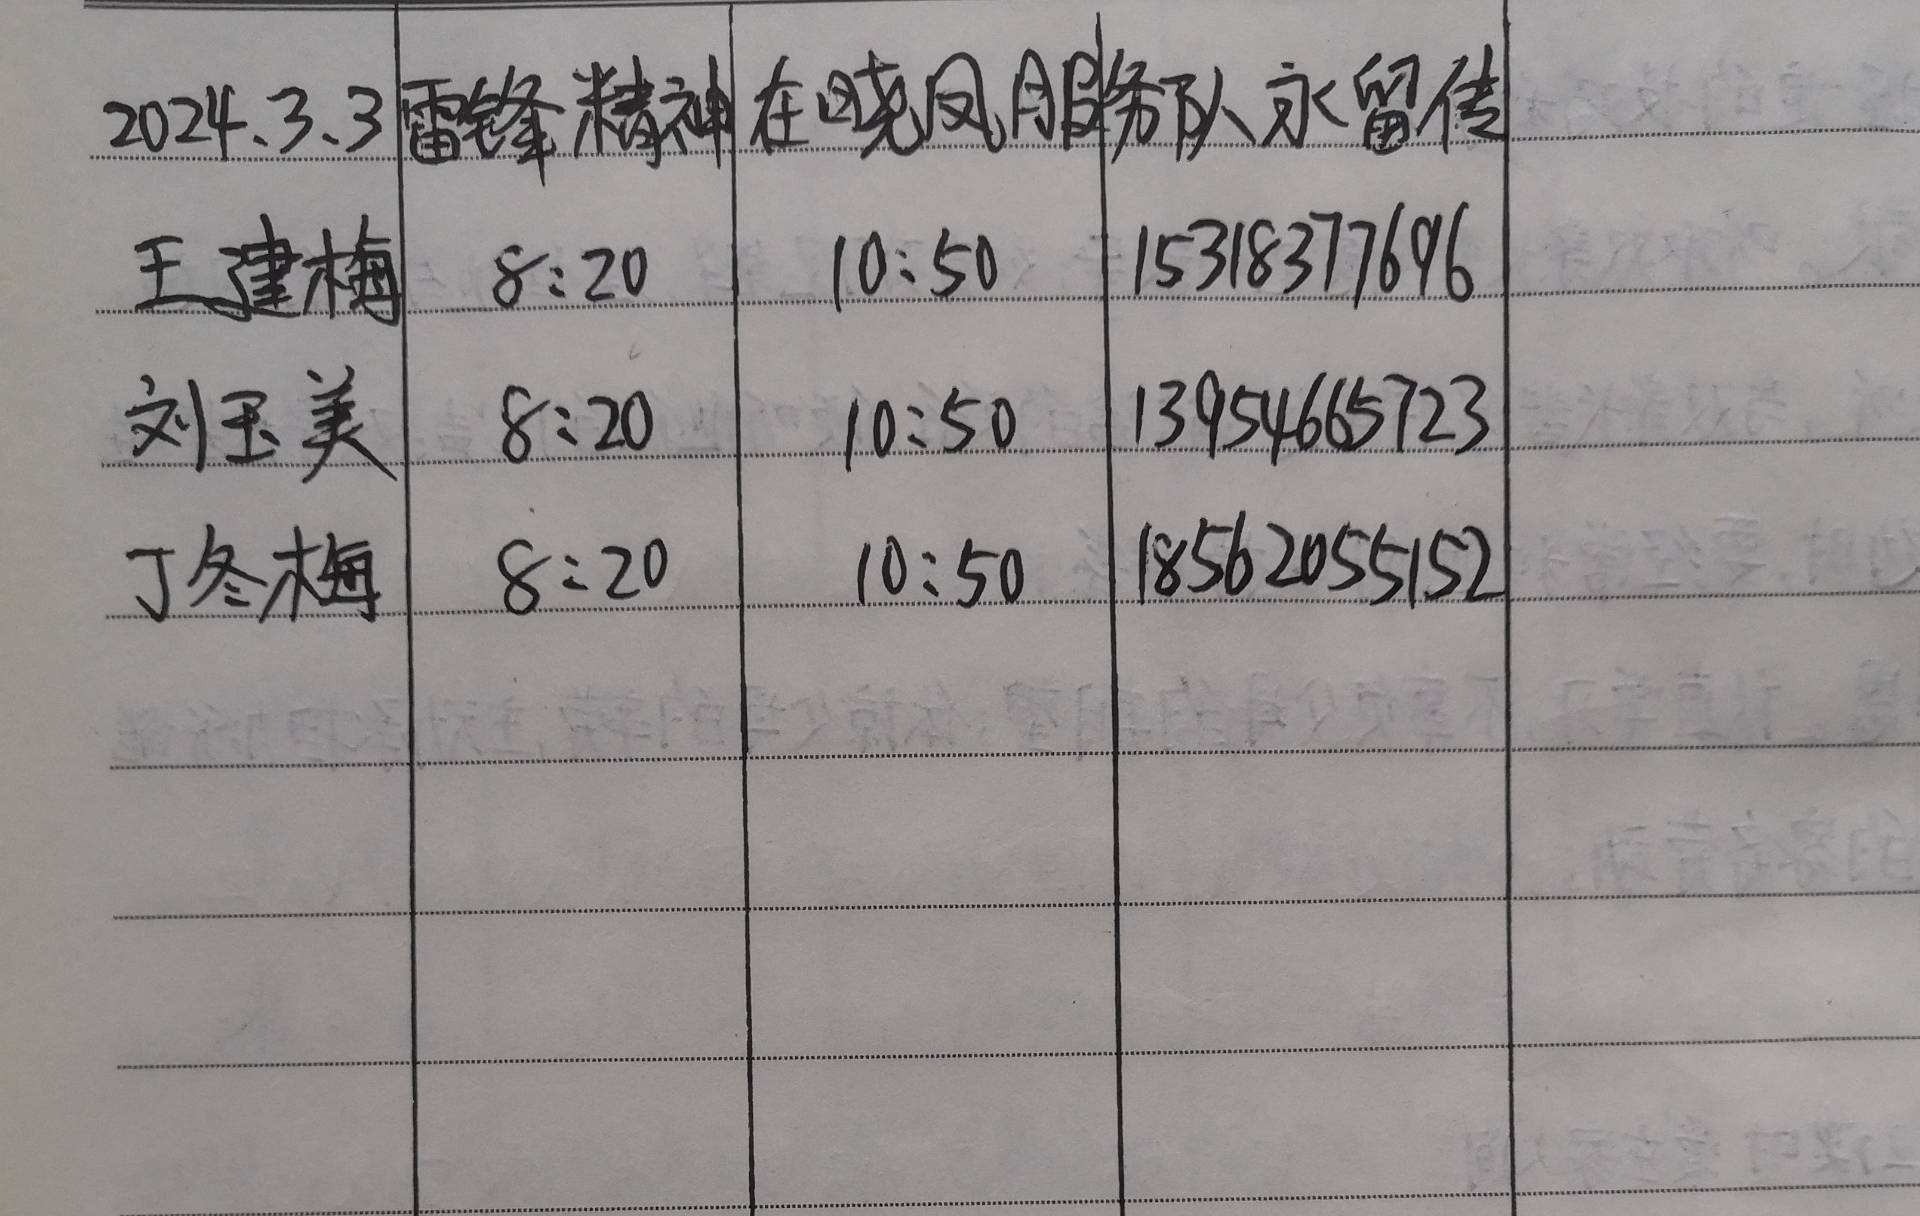 2024.3.3 雷锋精神在晓凤服务队永留传
王建梅 8:20 10:50 15318377696
刘玉美 8:20 10:50 13954665723
丁冬梅 8:20 10:50 18562055152